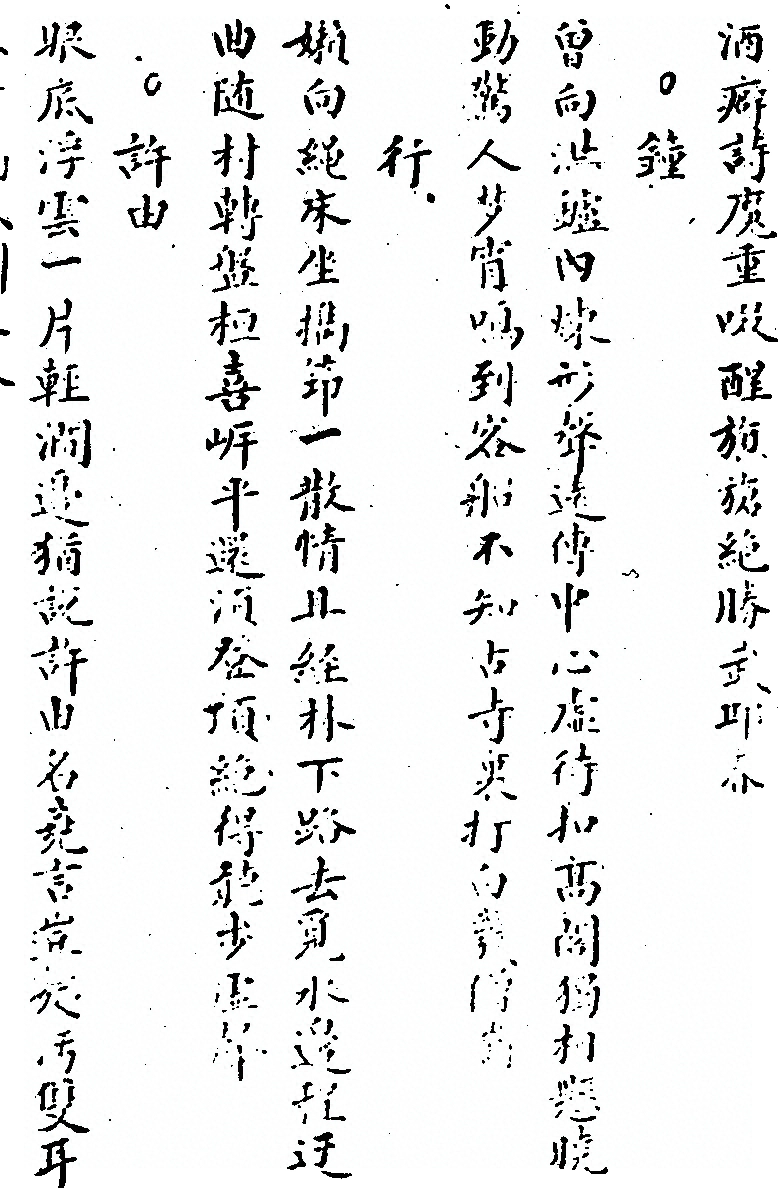 酒癖詩魔重啜醒旗旌絶勝武耶春
○鐘
曾向洪鑪內煉形聲遠傳中心虛待扣高閣獨相懸曉
動驚人梦宵鳴到客船不知古寺裏打向幾僧前
行
嬾向繩床坐携笻一散情且經林下路去覓水邊程迂
曲随村轉盤桓喜岸平還須登頂絶得聽步虛聲
○許由
眼底浮雲一片輕澗邊猶說許由名堯言豈能汚雙耳